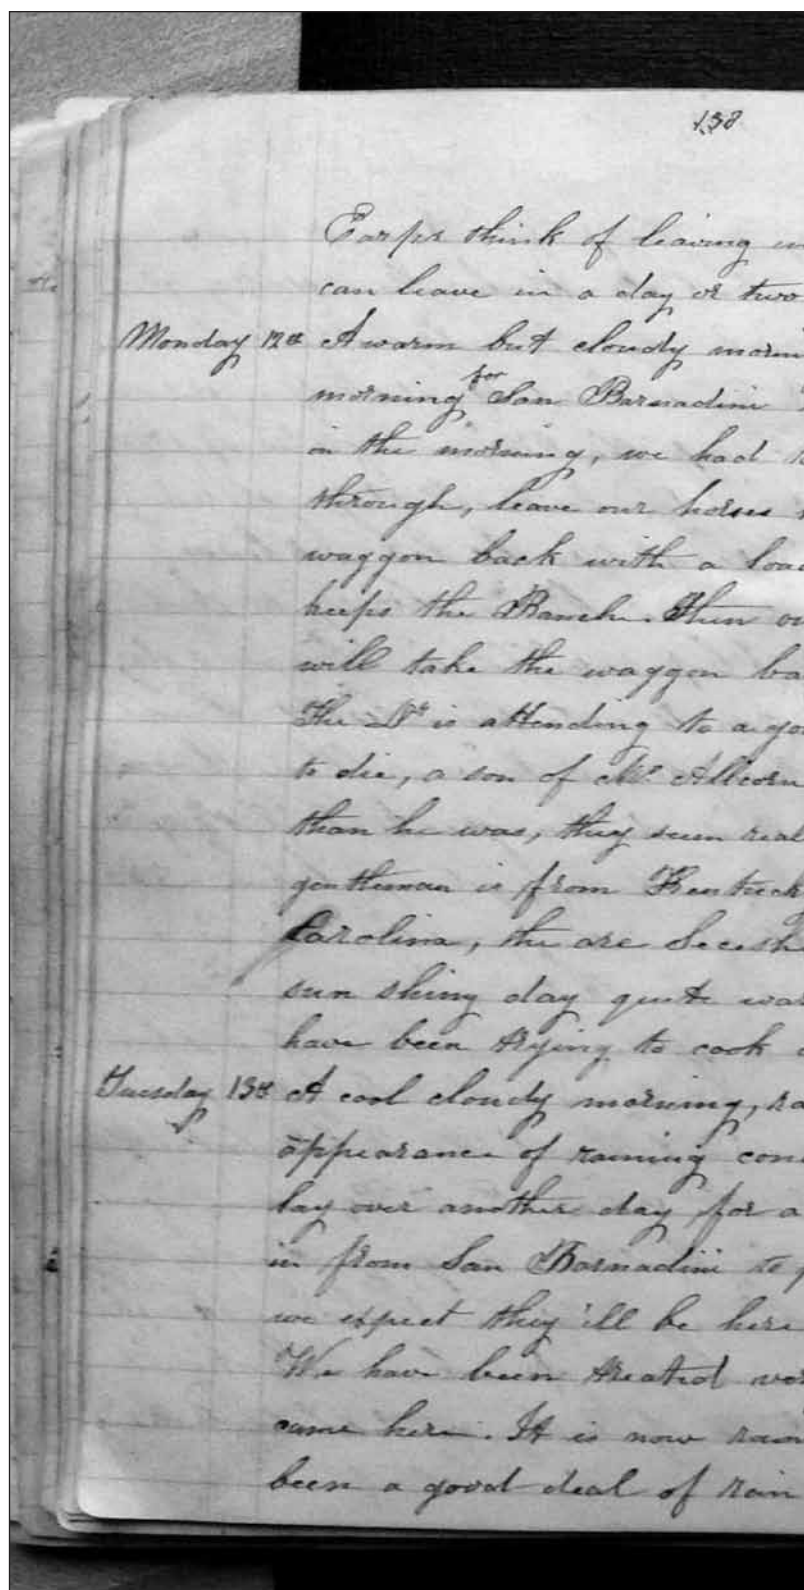 138
Earps think of leaving
can leave in a day or two
Monday 12th A warm but cloudy
morning for San Barnadini
in the morning, we had
through, leave our horses
waggon back with a
keeps the Ranch. Then
will take the waggon
The Dr is attending to a
to die, a son of Mr. Allcorn
than he was, they seem
gentleman is from
Carolina, the are
sun shiny day quite
have been trying to cook
Tuesday 13th A cool cloudy morning,
appearance of raining
lay over another day for a
in from San Barnadini to
we expect they'll be here
We have been treated
came here. It is now
been a good deal of rain